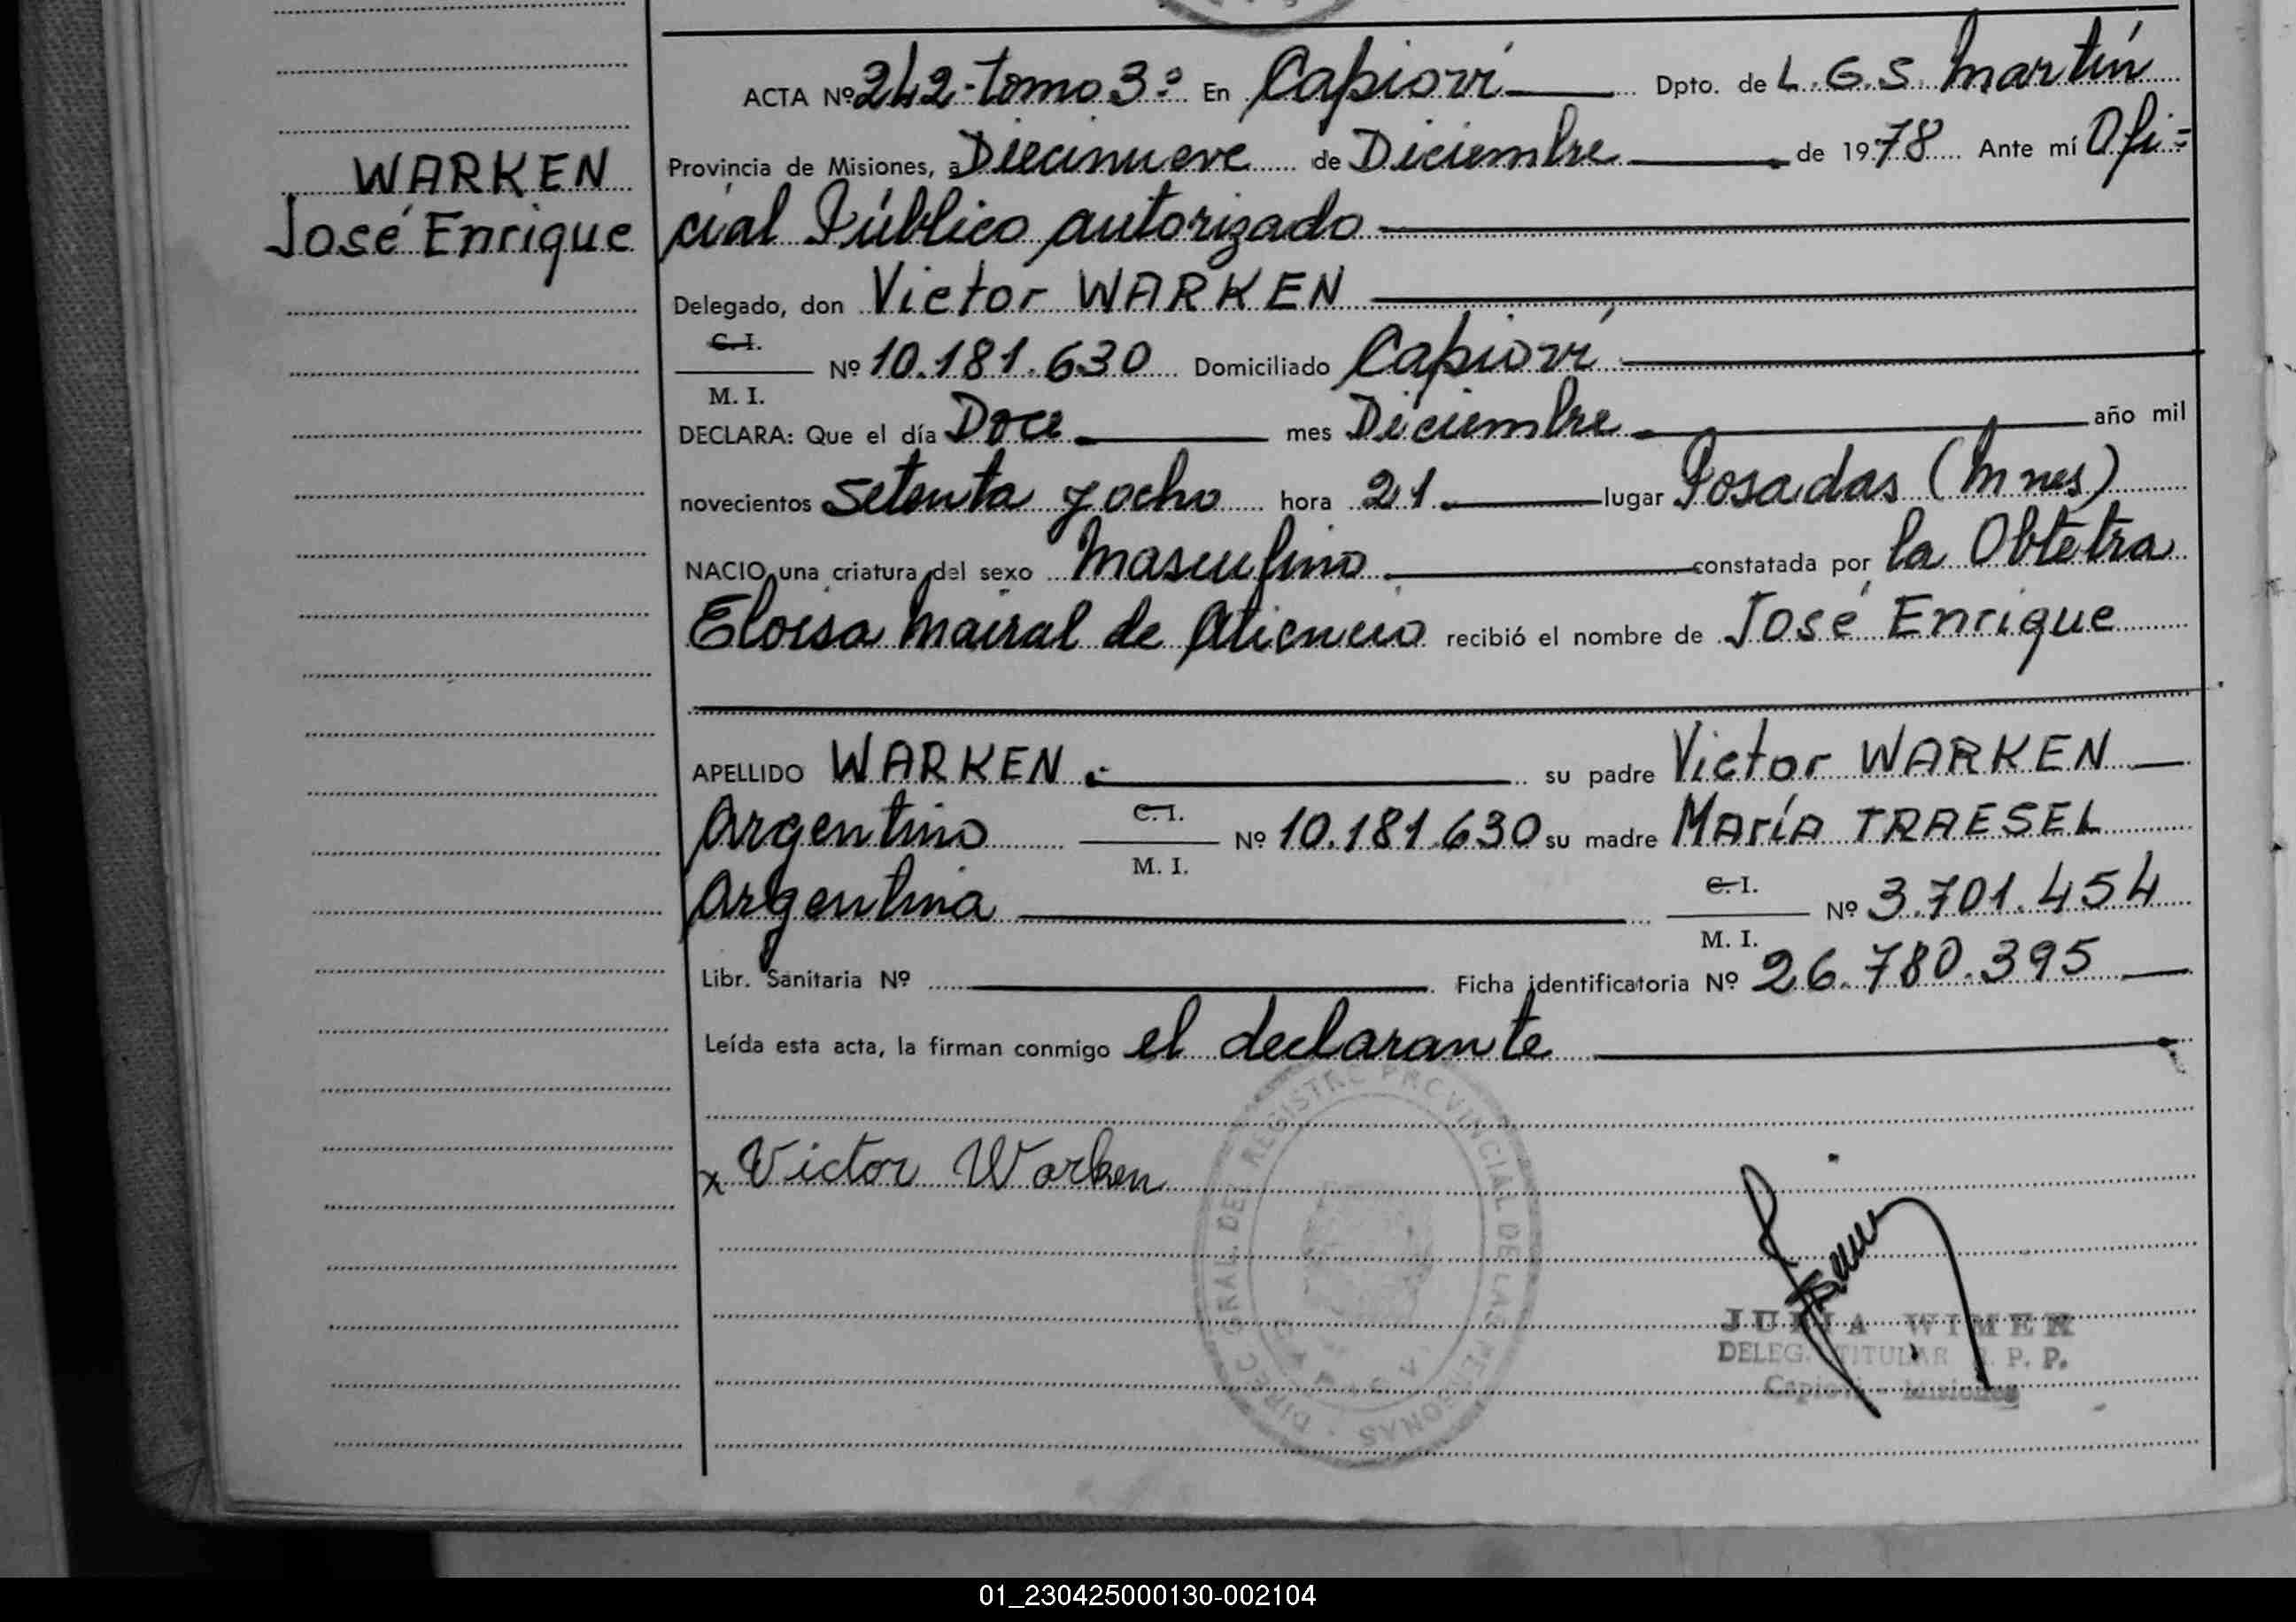 ACTA Nº 242-tomo 3º En Capioví Dpto. de L.G.S. Martín
Provincia de Misiones, a Diecinueve de Diciembre de 1978 Ante mí Ofi=
WARKEN
José Enrique
cial Público autorizado
Delegado, don Victor WARKEN
C. I.
Nº 10.181.630 Domiciliado Capioví
M. I.
DECLARA: Que el día Doce mes Diciembre año mil
novecientos Setenta y ocho hora 21 lugar Posadas (Mnes)
NACIO una criatura del sexo Masculino constatada por la Obtetra
Eloisa Mairal de recibió el nombre de José Enrique
APELLIDO WARKEN su padre Victor WARKEN
Argentino C. I. Nº 10.181.630 su madre María TRAESEL
M. I.
Argentina C. I. Nº 3.701.454
M. I.
Libr. Sanitaria Nº Ficha identificatoria Nº 26.780.395
Leída esta acta, la firman conmigo el declarante
x Victor Warken
DIREC. GRAL. DEL REGISTRO PROVINCIAL DE LAS PERSONAS
JULIA WIMER
DELEG. TITULAR R. P. P.
Capioví - Misiones
01_230425000130-002104